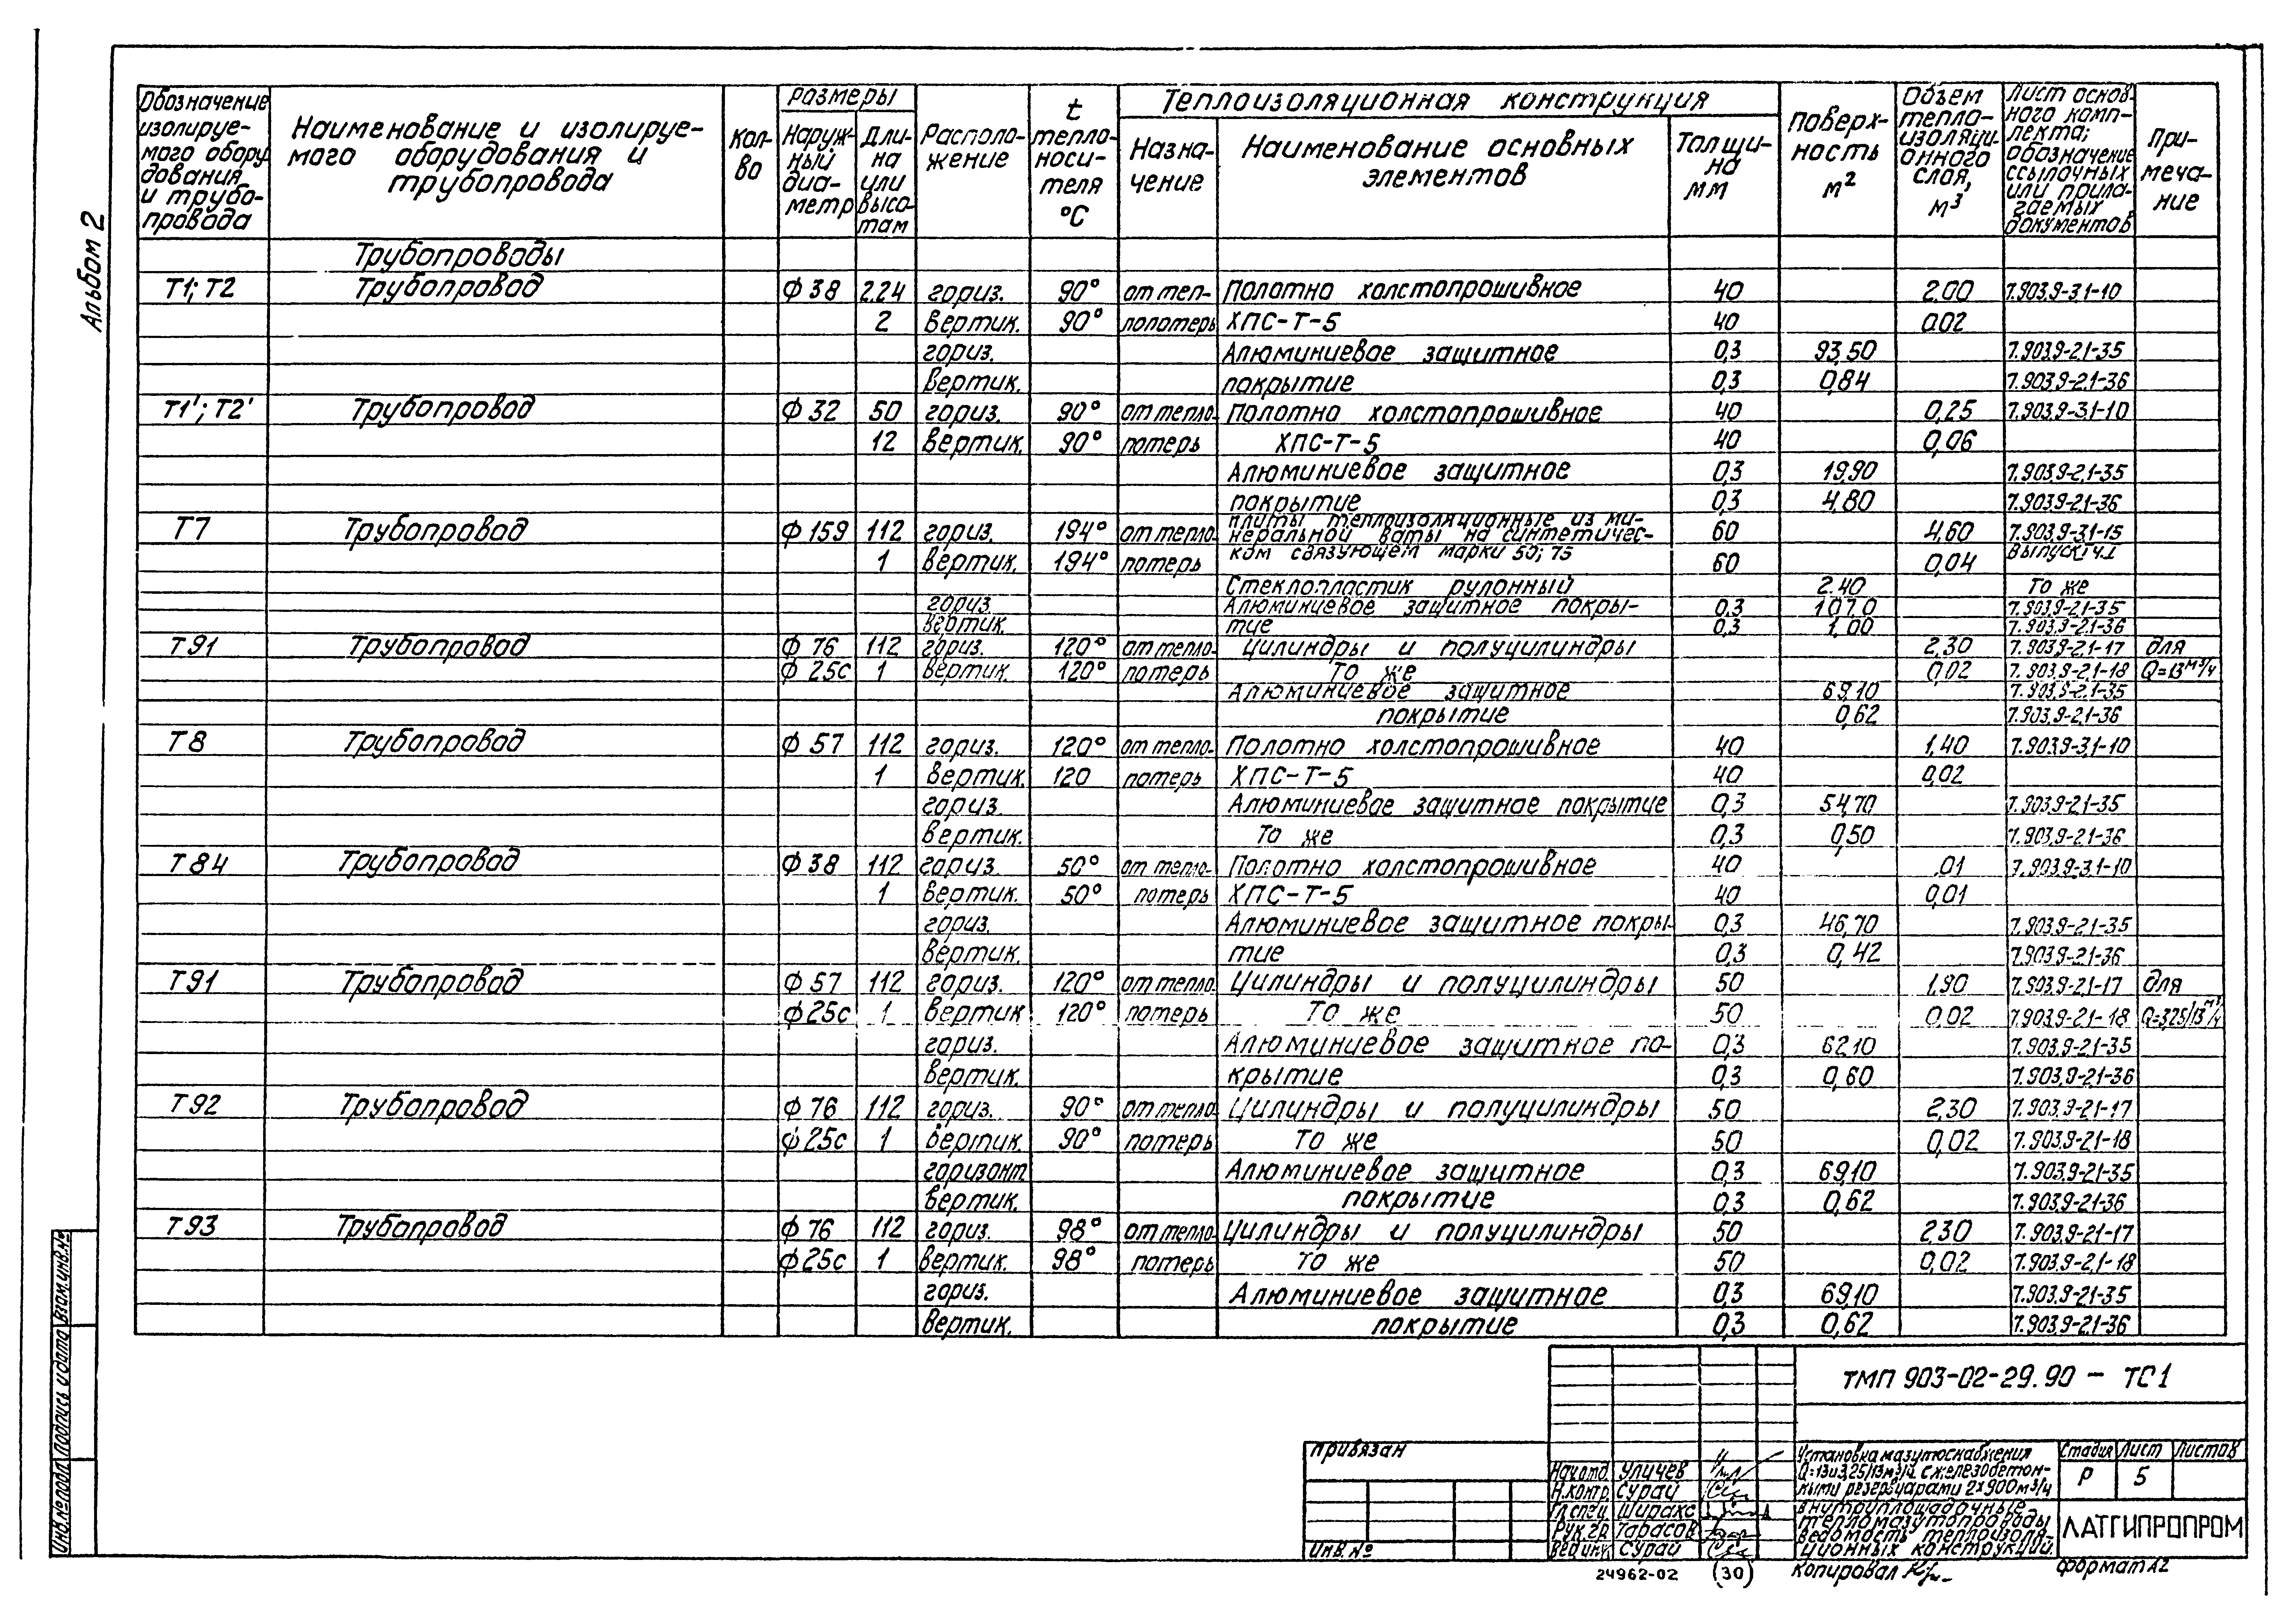 Альбом 2
Обозначение изолируемого оборудования и трубопровода | Наименование и изолируемого оборудования и трубопровода | Кол-во | Размеры | Наружный диаметр | Длина или высота м | Расположение | t теплоносителя °С | Теплоизоляционная конструкция | Назначение | Наименование основных элементов | Толщина мм | Поверхность м² | Объем теплоизоляционного слоя, м³ | Лист основного комплекта; обозначение ссылочных или прилагаемых документов | Примечание
Трубопроводы
Т1; Т2 Трубопровод ф 38 2.24 гориз. 90° от теп- Полотно холстопрошивное 40 2.00 7.903.9-3.1-10
2 вертик. 90° лопотерь ХПС-Т-5 40 0.02
гориз. Алюминиевое защитное 0,3 93,50 7.903.9-2.1-35
вертик. покрытие 0,3 0,84 7.903.9-2.1-36
Т1'; Т2' Трубопровод ф 32 50 гориз. 90° от тепло Полотно холстопрошивное 40 0,25 7.903.9-3.1-10
12 вертик. 90° потерь ХПС-Т-5 40 0,06
Алюминиевое защитное 0,3 19,90 7.903.9-2.1-35
покрытие 0,3 4,80 7.903.9-2.1-36
Т7 Трубопровод ф 159 112 гориз. 194° от тепло плиты теплоизоляционные из ми-
неральной ваты на синтетичес- 60 4,60 7.903.9-3.1-15
1 вертик. 194° потерь ком связующем марки 50; 75 60 0,04 Выпуск 1 ч.1
Стеклопластик рулонный 2.40 то же
гориз. Алюминиевое защитное покры- 0,3 107,0 7.903.9-2.1-35
вертик. тие 0,3 1,00 7.903.9-2.1-36
Т91 Трубопровод ф 76 112 гориз. 120° от тепло- Цилиндры и полуцилиндры 2,30 7.903.9-2.1-17 для
ф 25с 1 вертик. 120° потерь То же 0,02 7.903.9-2.1-18 Q=13 м³/ч
Алюминиевое защитное 69,10 7.903.9-2.1-35
покрытие 0,62 7.903.9-2.1-36
Т8 Трубопровод ф 57 112 гориз. 120° от тепло- Полотно холстопрошивное 40 1,40 7.903.9-3.1-10
1 вертик. 120 потерь ХПС-Т-5 40 0,02
гориз. Алюминиевое защитное покрытие 0,3 54,70 7.903.9-2.1-35
вертик. То же 0,3 0,50 7.903.9-2.1-36
Т84 Трубопровод ф 38 112 гориз. 50° от тепло- Полотно холстопрошивное 40 .01 7.903.9-3.1-10
1 вертик. 50° потерь ХПС-Т-5 40 0,01
гориз. Алюминиевое защитное покры- 0,3 46,70 7.903.9-2.1-35
вертик. тие 0,3 0,42 7.903.9-2.1-36
Т91 Трубопровод ф 57 112 гориз. 120° от тепло Цилиндры и полуцилиндры 50 1,90 7.903.9-2.1-17 для
ф 25с 1 вертик 120° потерь То же 50 0,02 7.903.9-2.1-18 Q=3,25/13 м³/ч
гориз. Алюминиевое защитное по- 0,3 62,10 7.903.9-2.1-35
вертик. крытие 0,3 0,60 7.903.9-2.1-36
Т92 Трубопровод ф 76 112 гориз. 90° от тепло Цилиндры и полуцилиндры 50 2,30 7.903.9-2.1-17
ф 25с 1 вертик. 90° потерь То же 50 0,02 7.903.9-2.1-18
горизонт. Алюминиевое защитное 0,3 69,10 7.903.9-2.1-35
вертик. покрытие 0,3 0,62 7.903.9-2.1-36
Т93 Трубопровод ф 76 112 гориз. 98° от тепло- Цилиндры и полуцилиндры 50 2,30 7.903.9-2.1-17
ф 25с 1 вертик. 98° потерь То же 50 0,02 7.903.9-2.1-18
гориз. Алюминиевое защитное 0,3 69,10 7.903.9-2.1-35
вертик. покрытие 0,3 0,62 7.903.9-2.1-36
Инв.№ подл. Подпись и дата Взам.инв.№
ТМП 903-02-29.90 - ТС1
привязан
Инв.№
Нач.отд. Уличев
Н.контр. Сурай
Гл.спец. Ширакс
Рук.гр. Тарасов
Вед.инж. Сурай
Установка мазутоснабжения
Q=13 и 3,25/13 м³/ч с железобетон-
ными резервуарами 2х900 м³/ч
Стадия Лист Листов
Р 5
внутриплощадочные
тепломазутопроводы
ведомость теплоизоля-
ционных конструкций.
ЛАТГИПРОПРОМ
24962-02 (30) Копировал формат А2